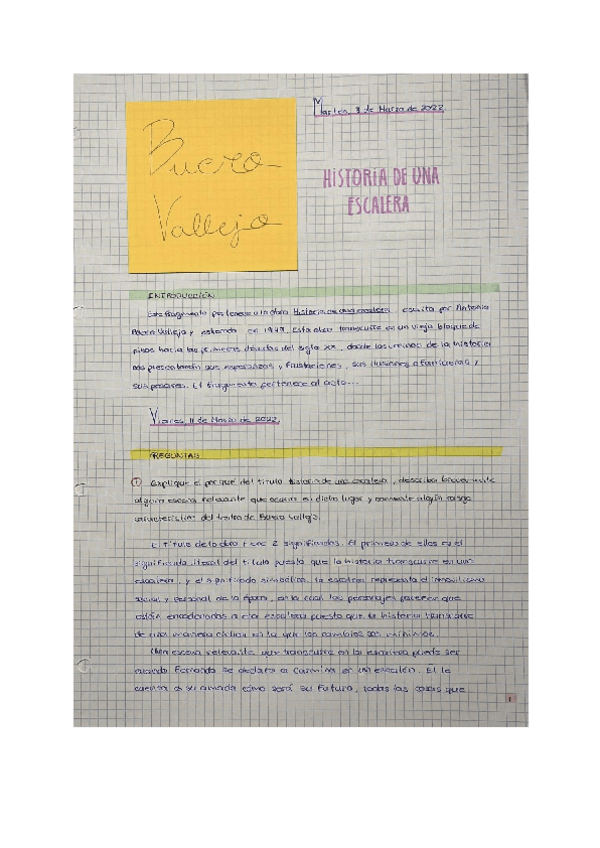 Buero
Vallejo
Martes, 8 de Marzo de 2022.
HISTORIA DE UNA
ESCALERA
INTRODUCCIÓN
Este fragmento pertenece a la obra Historia de una escalera escrita por Antonio
Buero Vallejo y estrenada en 1949. Esta obra transcurre en un viejo bloque de
pisos hacia las primeras décadas del siglo XX, donde los vecinos de la historia
nos presentarán sus esperanzas y frustraciones, sus ilusiones a funcionar y
sus pesares. El fragmento pertenece al acto...
Viernes, 11 de Marzo de 2022.
PREGUNTAS
① Explique el por qué del título Historia de una escalera, describa brevemente
alguna escena relevante que ocurra en dicho lugar y comente algún rasgo
característico del teatro de Buero Vallejo.
El título de la obra tiene 2 significados. El primero de ellos es el
significado literal del título puesto que la historia transcurre en una
escalera, y el significado simbólico. La escalera representa el inmovilismo
social y personal de la época, en la cual los personajes parecen que
están encadenados a esa escalera puesto que la historia transcurre
de una manera cíclica en la que los cambios son mínimos.
Una escena relevante que transcurre en la escalera puede ser
cuando Fernando se declara a Carmina en un escalón. Él le
cuenta a su amada cómo será su futuro, todas las cosas que
1